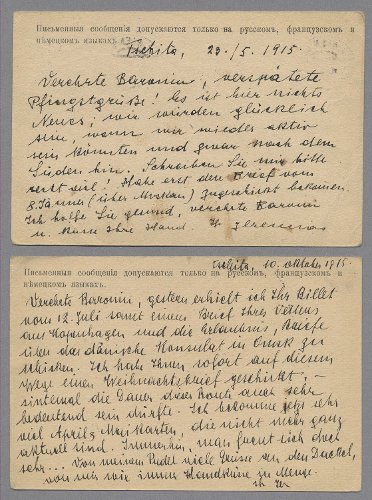 Письменныя сообщенія допускаются только на русскомъ, французскомъ и
нѣмецкомъ языкахъ.
Tschita, 23./5. 1915.
Verehrte Baronin, verspätete
Pfingstgrüße! Es ist hier nichts
Neues; wir würden glücklich
sein, wenn wir wieder aktiv
sein könnten und zwar nach dem
Süden hin. Schreiben Sie mir bitte
recht viel! Habe erst den Brief vom
8. Jänner (über Moskau) zugeschickt bekommen.
Ich hoffe Sie gesund, verehrte Baronin
u. küsse Ihre Hand Ihr
Tschita, 10. oktober 1915.
Письменныя сообщенія допускаются только на русскомъ, французскомъ и
нѣмецкомъ языкахъ.
Verehrte Baronin, gestern erhielt ich Ihr Billet
vom 12. Juli samt einem Brief Ihres Vetters
aus Kopenhagen und die Erlaubnis, Briefe
über das dänische Konsulat in Omsk zu
schicken. Ich habe Ihnen sofort auf diesem
Wege einen Weihnachtsbrief geschickt, –
sintemal die Dauer dieser Route auch sehr
bedeutend sein dürfte. Ich bekomme jetzt sehr
viel April & Maikarten, die nicht mehr ganz
aktuell sind. Immerhin, man freut sich doch
sehr... Von meinem Pudel viele Grüße an den Dackel,
von mir wie immer Handküsse in Menge.
Ihr